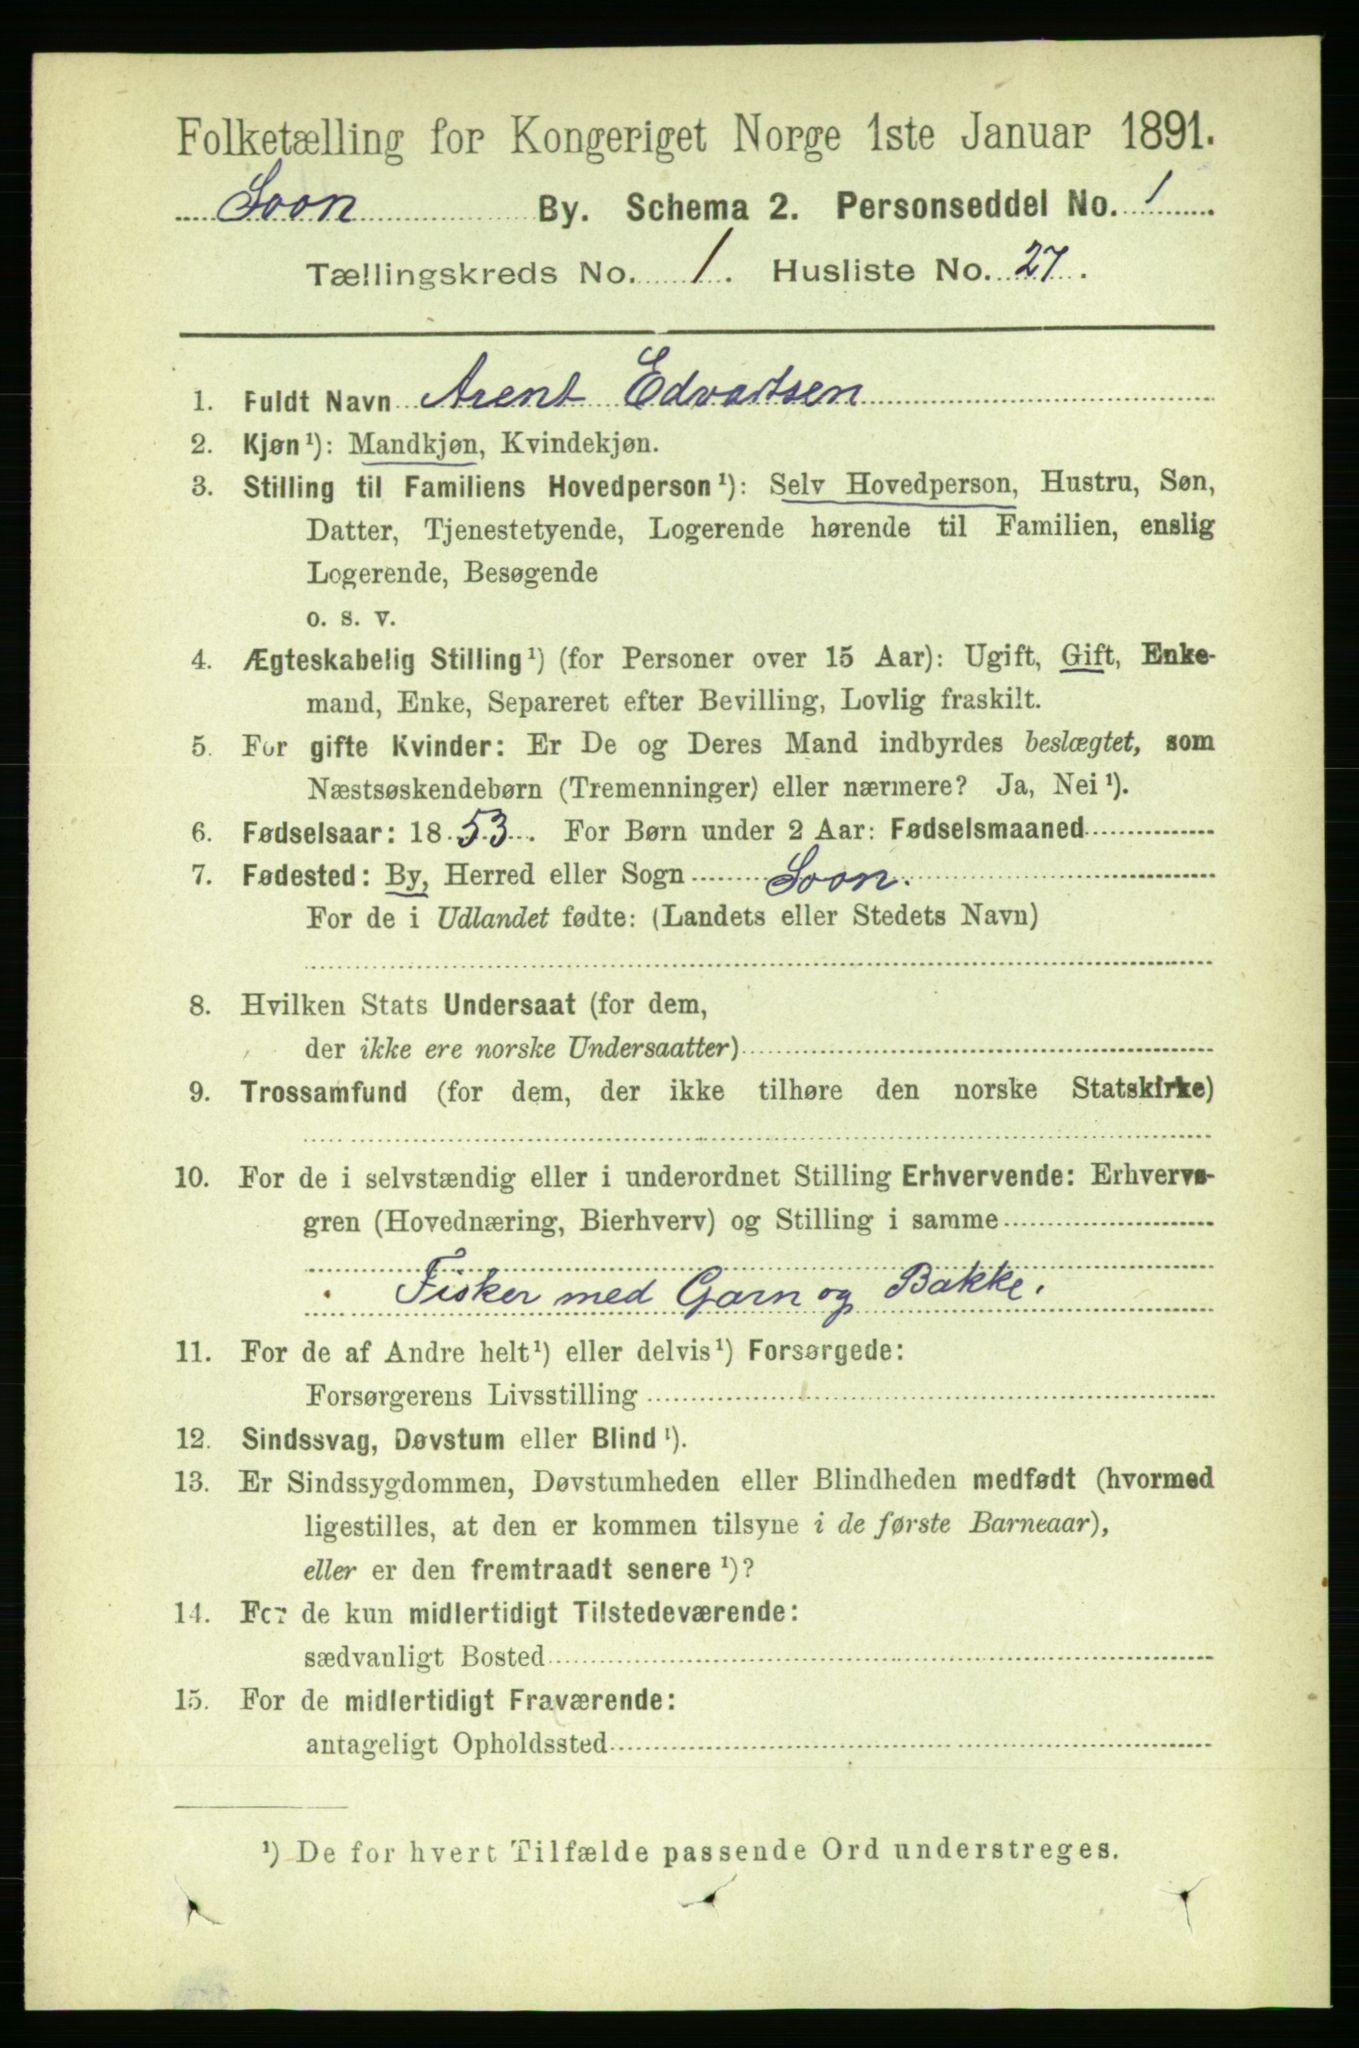 Folketælling for Kongeriget Norge 1ste Januar 1891.
Soon By. Schema 2. Personseddel No. 1
Tællingskreds No. 1. Husliste No. 27.
1. Fuldt Navn Arent Edvartsen
2. Kjøn¹): Mandkjøn, Kvindekjøn.
3. Stilling til Familiens Hovedperson¹): Selv Hovedperson, Hustru, Søn,
Datter, Tjenestetyende, Logerende hørende til Familien, enslig
Logerende, Besøgende
o. s. v.
4. Ægteskabelig Stilling¹) (for Personer over 15 Aar): Ugift, Gift, Enke-
mand, Enke, Separeret efter Bevilling, Lovlig fraskilt.
5. For gifte Kvinder: Er De og Deres Mand indbyrdes beslægtet, som
Næstsøskendebørn (Tremenninger) eller nærmere? Ja, Nei¹).
6. Fødselsaar: 1853. For Børn under 2 Aar: Fødselsmaaned
7. Fødested: By, Herred eller Sogn Soon.
For de i Udlandet fødte: (Landets eller Stedets Navn)
8. Hvilken Stats Undersaat (for dem,
der ikke ere norske Undersaatter)
9. Trossamfund (for dem, der ikke tilhøre den norske Statskirke)
10. For de i selvstændig eller i underordnet Stilling Erhvervende: Erhvervs-
gren (Hovednæring, Bierhverv) og Stilling i samme
Fisker med Garn og Bakke.
11. For de af Andre helt¹) eller delvis¹) Forsørgede:
Forsørgerens Livsstilling
12. Sindssvag, Døvstum eller Blind¹).
13. Er Sindssygdommen, Døvstumheden eller Blindheden medfødt (hvormed
ligestilles, at den er kommen tilsyne i de første Barneaar),
eller er den fremtraadt senere¹)?
14. For de kun midlertidigt Tilstedeværende:
sædvanligt Bosted
15. For de midlertidigt Fraværende:
antageligt Opholdssted
¹) De for hvert Tilfælde passende Ord understreges.